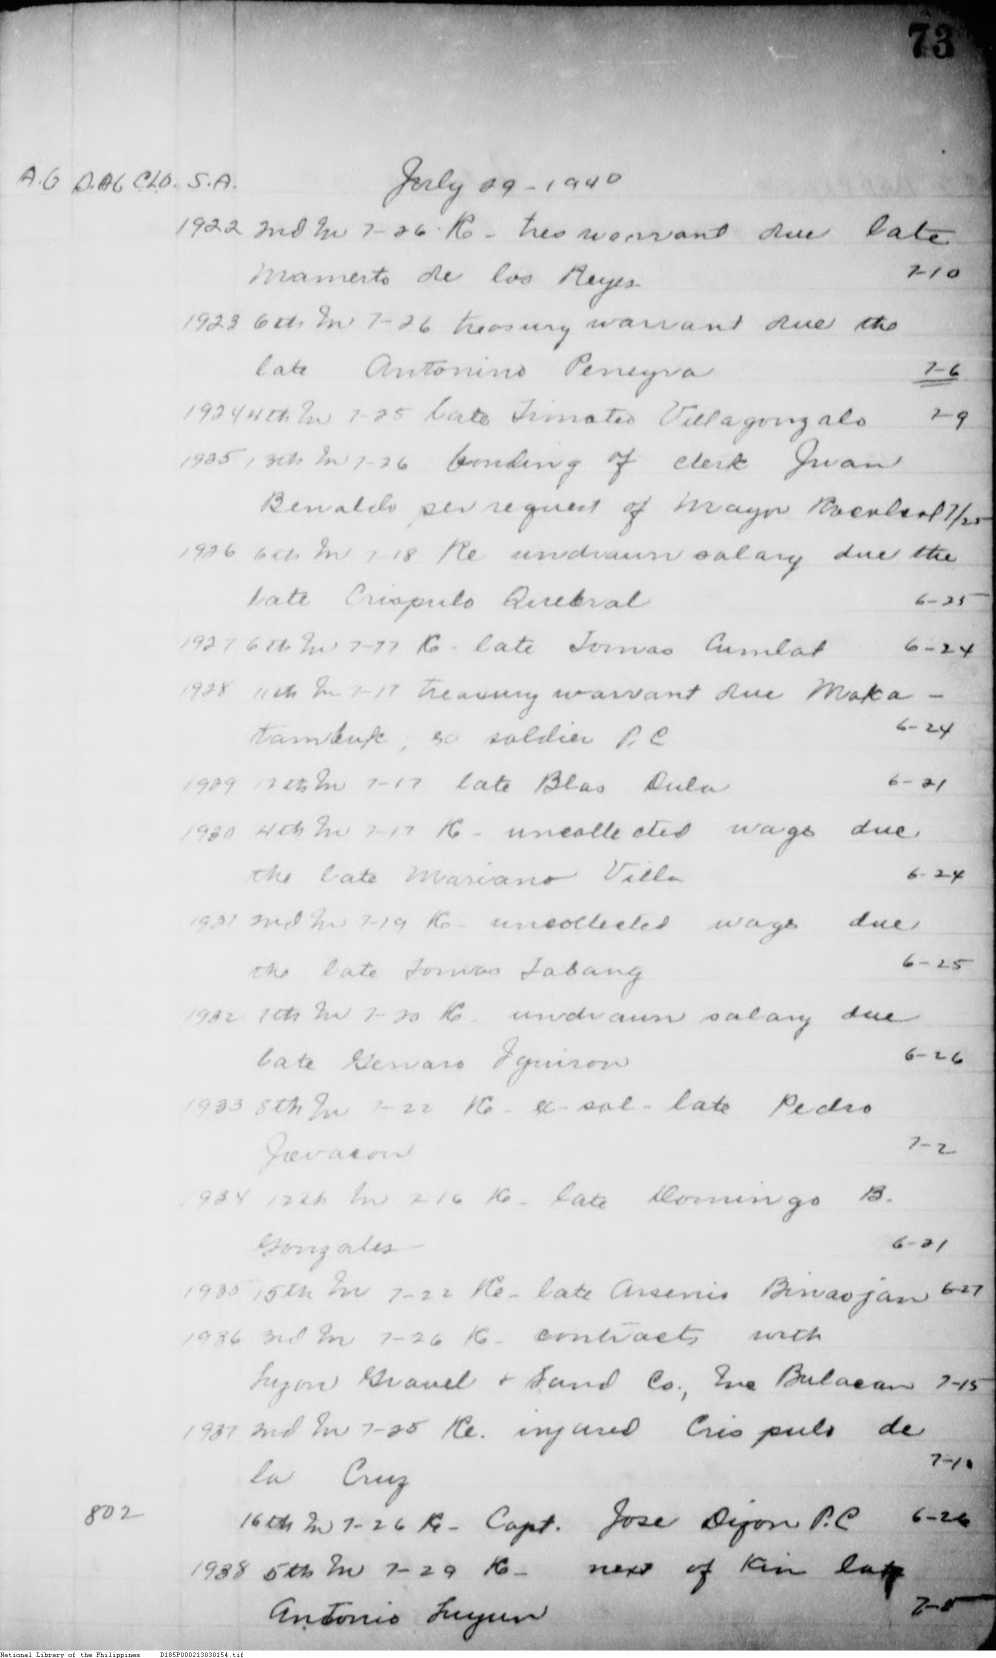 73
A.G D.AG CLD. S.A. July 29-1940
1922 2nd In 7-26 Re - tres warrant due late
Mamerto de los Reyes 7-10
1923 6th In 7-26 treasury warrant due the
late Antonino Peneyra 7-6
1924 4th In 7-25 late Timoteo Villagonzalo 7-9
1925 13th In 7-26 bonding of clerk Juan
Benaldo per request of Mayor 7/25
1926 6th In 7-18 Re undrawn salary due the
late Crispulo Quebral 6-25
1927 6th In 7-17 Re - late Tomas Cumlat 6-24
1928 11th In 7-17 treasury warrant due Maka -
tambuk, ex soldier P.C 6-24
1929 12th In 7-17 late Blas Dula 6-21
1930 4th In 7-17 Re - uncollected wage due
the late Mariano Villa 6-24
1931 2nd In 7-19 Re - uncollected wage due
the late Tomas Tabang 6-25
1932 7th In 7-20 Re - undrawn salary due
late Genaro 6-26
1933 8th In 7-22 Re - ex-sol- late Pedro
7-2
1934 12th In 7-16 Re - late Domingo B.
Gonzales 6-21
1935 15th In 7-22 Re - late Arsenio Binaojan 6-27
1936 3rd In 7-26 Re - contracts with
Luzon Gravel & Sand Co., Inc Bulacan 7-15
1937 2nd In 7-25 Re. injured Crispulo de
la Cruz 7-10
802 16th In 7-26 Re - Capt. Jose Dizon P.C 6-26
1938 5th In 7-29 Re - next of Kin late
Antonio Luyun 7-5
National Library of the Philippines D185P000213030154.tif